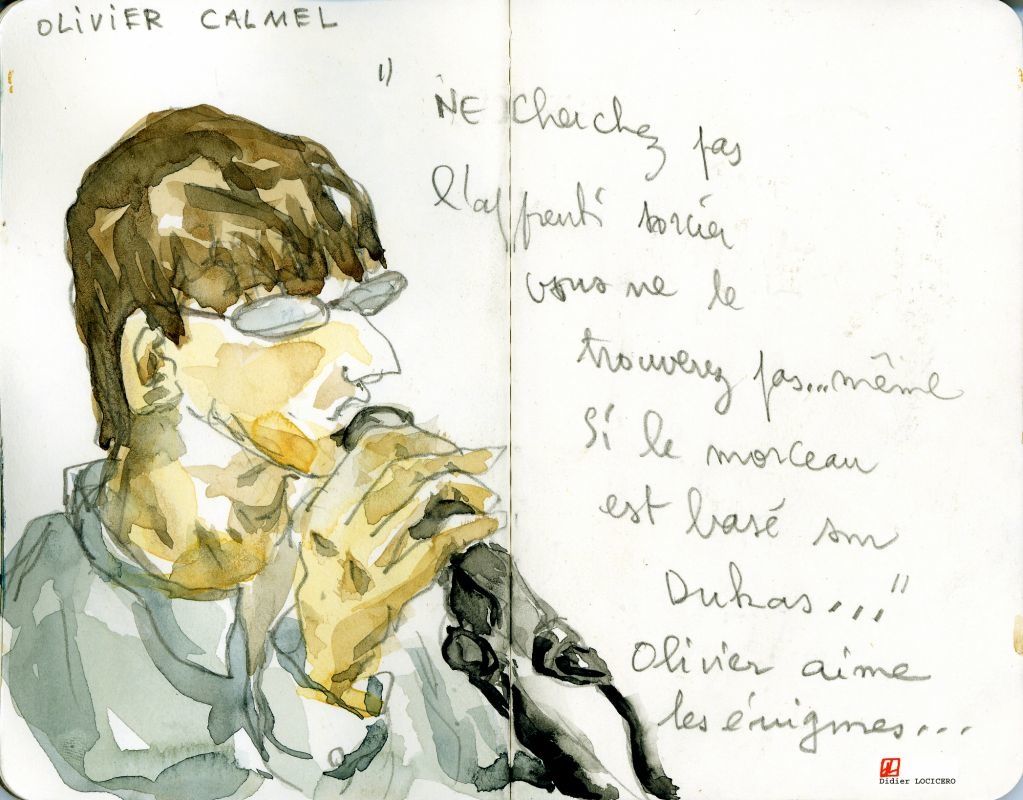 OLIVIER CALMEL
" NE cherchez pas
l'apprenti sorcier
vous ne le
trouverez pas...même
Si le morceau
est basé sur
Dukas..."
Olivier aime
les énigmes...
Didier LOCICERO